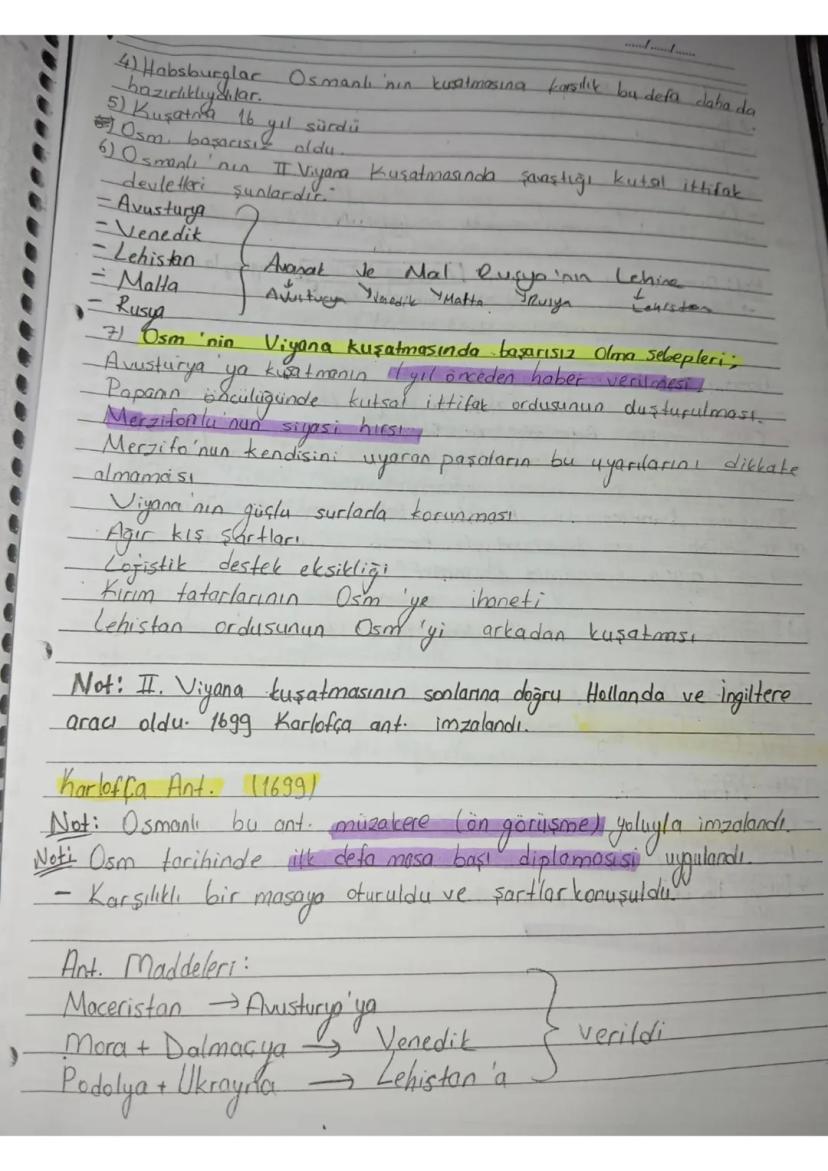 4) Habsburglar Osmanlı'nın kuşatmasına karşılık bu defa daha da
hazırlıklıydılar.
5) Kuşatma 16 yıl sürdü
Osm. başarısız oldu.
6) Osmanlı'nın II Viyana Kuşatmasında savaştığı kutsal ittifak
devletleri şunlardır:
- Avusturya
- Venedik
- Lehistan
- Malta
- Rusya
Avanat ve Mal Rusya'nın Lehine
Avusturya Venedik Malta Rusya Lehistan
7) Osm'nin Viyana kuşatmasında başarısız olma sebepleri;
Avusturya'ya kuşatmanın 1 yıl önceden haber verilmesi.
Papanın öncülüğünde kutsal ittifak ordusunun duşturulması.
Merzifonlu'nun siyasi hırsı
Merzifo'nun kendisini uyaran paşaların bu uyarılarını dikkate
almaması
Viyana'nın güçlu surlarla korunması
Ağır kış şartları
Lojistik destek eksikliği
Kırım tatarlarının Osm'ye ihaneti
Lehistan ordusunun Osm'yi arkadan kuşatması
Not: II. Viyana kuşatmasının sonlarına doğru Hollanda ve İngiltere
aracı oldu. 1699 Karlofça ant. imzalandı.
Karlofça Ant. (1699)
Not: Osmanlı bu ant. müzakere (ön görüşme) yoluyla imzalandı.
Not: Osm tarihinde ilk defa masa başı diplomasisi uygulandı.
- Karşılıklı bir masaya oturuldu ve şartlar konuşuldu.
Ant. Maddeleri:
Maceristan → Avusturya'ya
Mora + Dalmaçya → Venedik
verildi
Podolya + Ukrayna → Lehistan'a